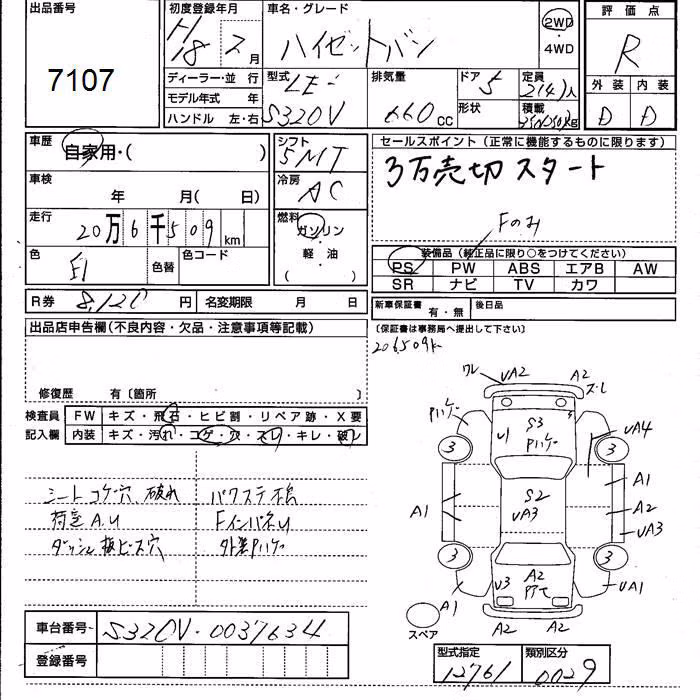 出品番号
7107
初度登録年月
H18 2月
車名・グレード
ハイゼットバン
2WD
・
4WD
評価点
R
外装 内装
D D
ディーラー・並 行
モデル年式 年
ハンドル 左・右
型式
LE-
S320V
排気量
660cc
ドア
5
形状
定員
2(4)人
積載
kg
車歴
自家用・( )
シフト
5MT
セールスポイント(正常に機能するものに限ります)
3万売切スタート
Fのみ
車検
年 月( 日)
冷房
AC
走行
20万6千509km
燃料
ガソリン
・
軽油
( )
色
色替
色コード
装備品(純正品に限り○をつけてください)
PS PW ABS エアB AW
SR ナビ TV カワ
R券 8,120円
名変期限 月 日
新車保証書
有・無
後日品
(保証書は事務局へ提出して下さい)
206509k
出品店申告欄(不良内容・欠品・注意事項等記載)
修復歴 有〔箇所 〕
検査員
記入欄
FW キズ・飛石・ヒビ割・リペア跡・X要
内装 キズ・汚れ・コゲ・穴・スレ・キレ・破レ
シートコゲ穴、破れ
荷室A.U
ダッシュ板ビス穴
パワステ
FインパネU
外装Pハゲ
ワレ
UA2
A2
ズレ
Pハゲ
S3
Pハゲ
U1
UA4
3
3
A1
S2
UA3
A1
A2
UA3
3
3
A1
U3
A2
UA1
A2
A2
スペア
車台番号
S320V-0037634
登録番号
型式指定
12761
類別区分
0029